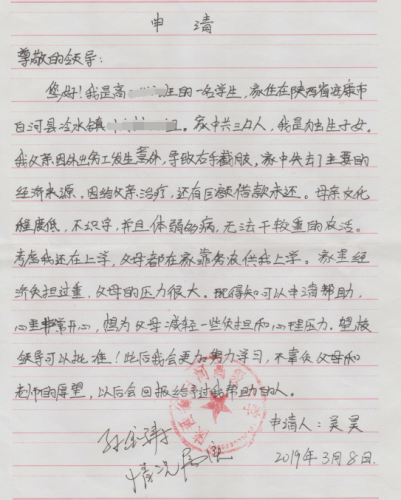 申请
尊敬的领导：
您好！我是高 班的一名学生，家住在陕西省安康市
白河县冷水镇 。家中共三口人，我是独生子女。
我父亲因外出务工发生意外，导致右手截肢，家中失去了主要的
经济来源，因给父亲治疗，还有巨额借款未还。母亲文化
程度低，不识字，并且体弱多病，无法干较重的农活。
考虑我还在上学，父母都在家靠务农供我上学。家里经
济负担过重，父母的压力很大。现得知可以申请帮助，
心里非常开心，想为父母减轻一些负担和心理压力。望校
领导可以批准！此后我会更加努力学习，不辜负父母和
老师的厚望，以后会回报给予过我帮助的人。
申请人：吴昊
情况属实
2019年3月8日.